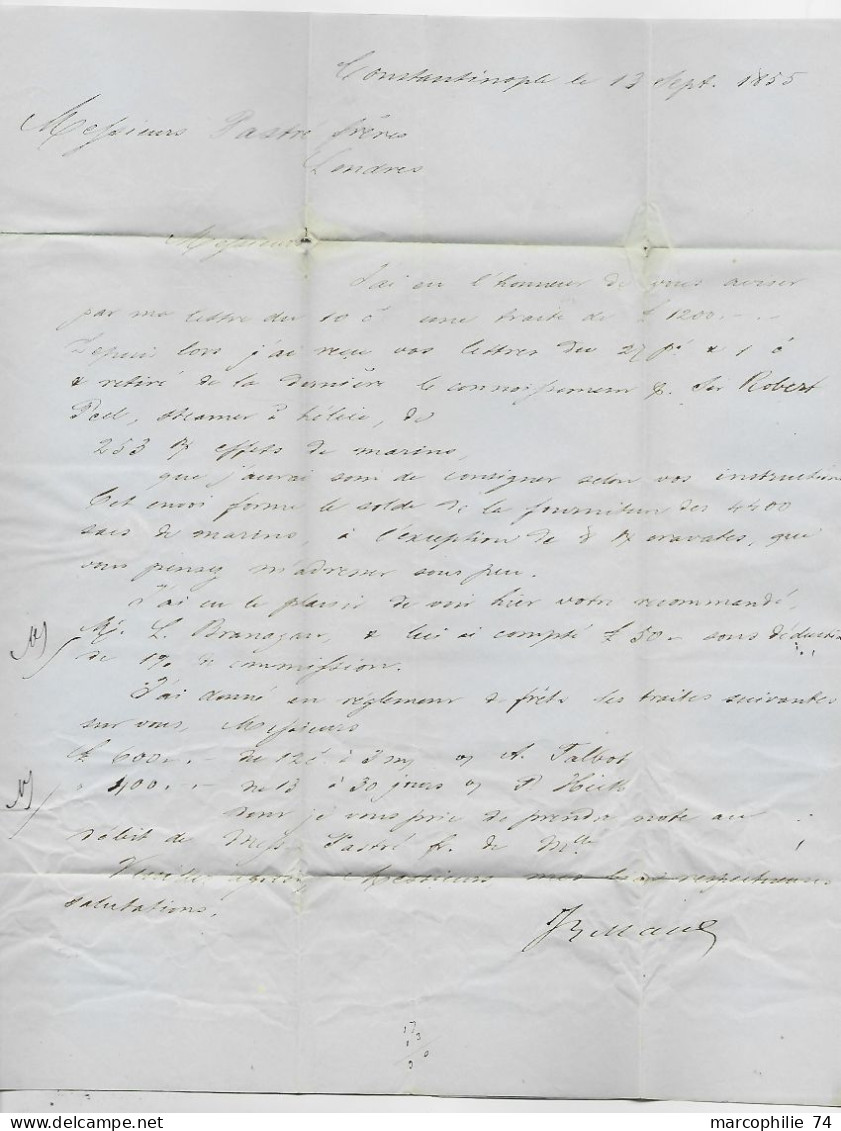 Constantinople le 13 Sept. 1855
Messieurs Pastré frères
Londres
Messieurs
J'ai eu l'honneur de vous aviser
par ma lettre du 10 ct une traite de £ 1200.--.-
Depuis lors j'ai reçu vos lettres du 27 pé & 1 ct
& retiré de la dernière le connoissement p. Sir Robert
Peel, steamer à hélice, de
253 effets de marins,
que j'aurai soin de consigner selon vos instructions
Cet envoi forme le solde de la fourniture des 4400
sacs de marins, à l'exception de 8 cravates, que
vous pensez m'adresser sous peu.
J'ai eu le plaisir de voir hier votre recommandé,
Mr. L. Branagan, & lui ai compté £ 50 - sous déduction
de 1% de commission.
J'ai donné en règlement de frêts les traites suivantes
sur vous, Messieurs
£ 600.- - du 12 ct à 3 m/ o/ A. Talbot
" 400.- - du 13 à 30 jours o/
dont je vous prie de prendre note au
débit de Mess. Pastré fr. de Mlle
Veuillez agréer, Messieurs mes respectueuses
salutations.
marcophilie 74